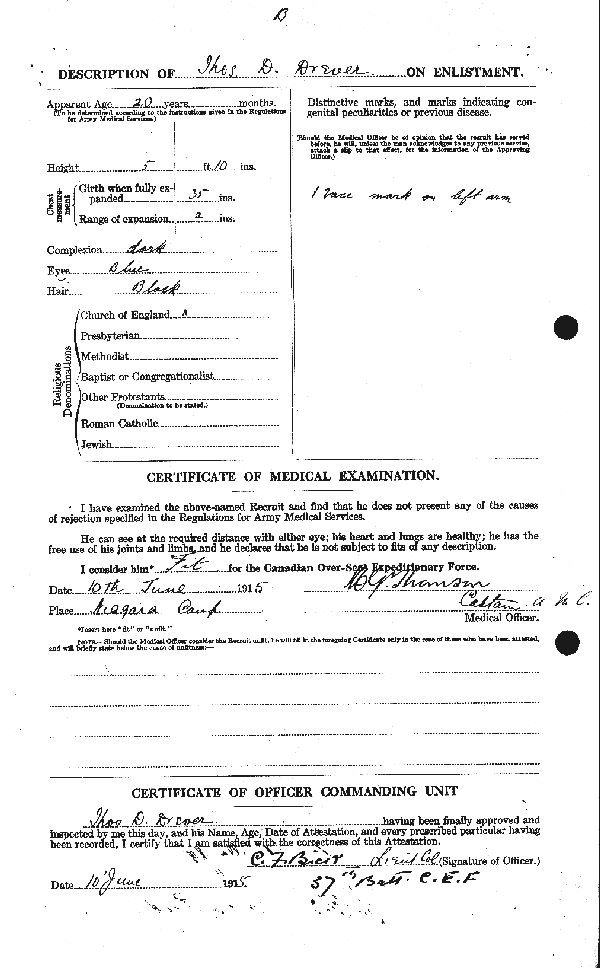 D
DESCRIPTION OF Thos D. Drever ON ENLISTMENT.
Apparent Age 20 years months.
(To be determined according to the instructions given in the Regulations for Army Medical Services.)
Height 5 ft. 10 ins.
Chest measurement
Girth when fully expanded 35 ins.
Range of expansion 2 ins.
Complexion dark
Eyes Blue
Hair Black
Religious Denominations
Church of England
Presbyterian
Methodist
Baptist or Congregationalist
Other Protestants
(Denomination to be stated.)
Roman Catholic
Jewish
Distinctive marks, and marks indicating con-
genital peculiarities or previous disease.
(Should the Medical Officer be of opinion that the recruit has served
before, he will, unless the man acknowledges to any previous service,
attach a slip to that effect, for the information of the Approving
Officer.)
1 Vacc mark on left arm
CERTIFICATE OF MEDICAL EXAMINATION.
I have examined the above-named Recruit and find that he does not present any of the causes
of rejection specified in the Regulations for Army Medical Services.
He can see at the required distance with either eye; his heart and lungs are healthy; he has the
free use of his joints and limbs, and he declares that he is not subject to fits of any description.
I consider him* Fit for the Canadian Over-Seas Expeditionary Force.
Date 10th June 1915
Thomson
Place Niagara Camp
Captain A. M. C.
Medical Officer.
*Insert here "fit" or "unfit."
NOTE.—Should the Medical Officer consider the Recruit unfit, he will fill in the foregoing Certificate only in the case of those who have been attested,
and will briefly state below the cause of unfitness:—
CERTIFICATE OF OFFICER COMMANDING UNIT
Thos D. Drever having been finally approved and
inspected by me this day, and his Name, Age, Date of Attestation, and every prescribed particular having
been recorded, I certify that I am satisfied with the correctness of this Attestation.
C. F. Bick Lieut Col (Signature of Officer.)
Date 10 June 1915
37th Batt. C.E.F